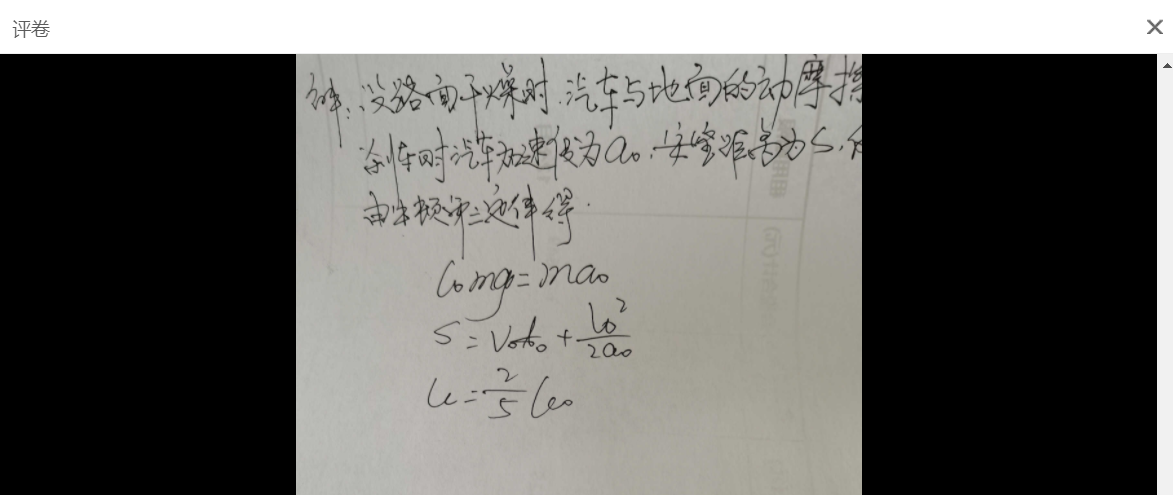 评卷
解:设路面干燥时.汽车与地面的动摩擦
刹车时汽车加速度为a₀.安全距离为S.
由牛顿第二定律得.
μ₀mg=ma₀
S=V₀t₀+V₀²/2a₀
μ=2/5μ₀